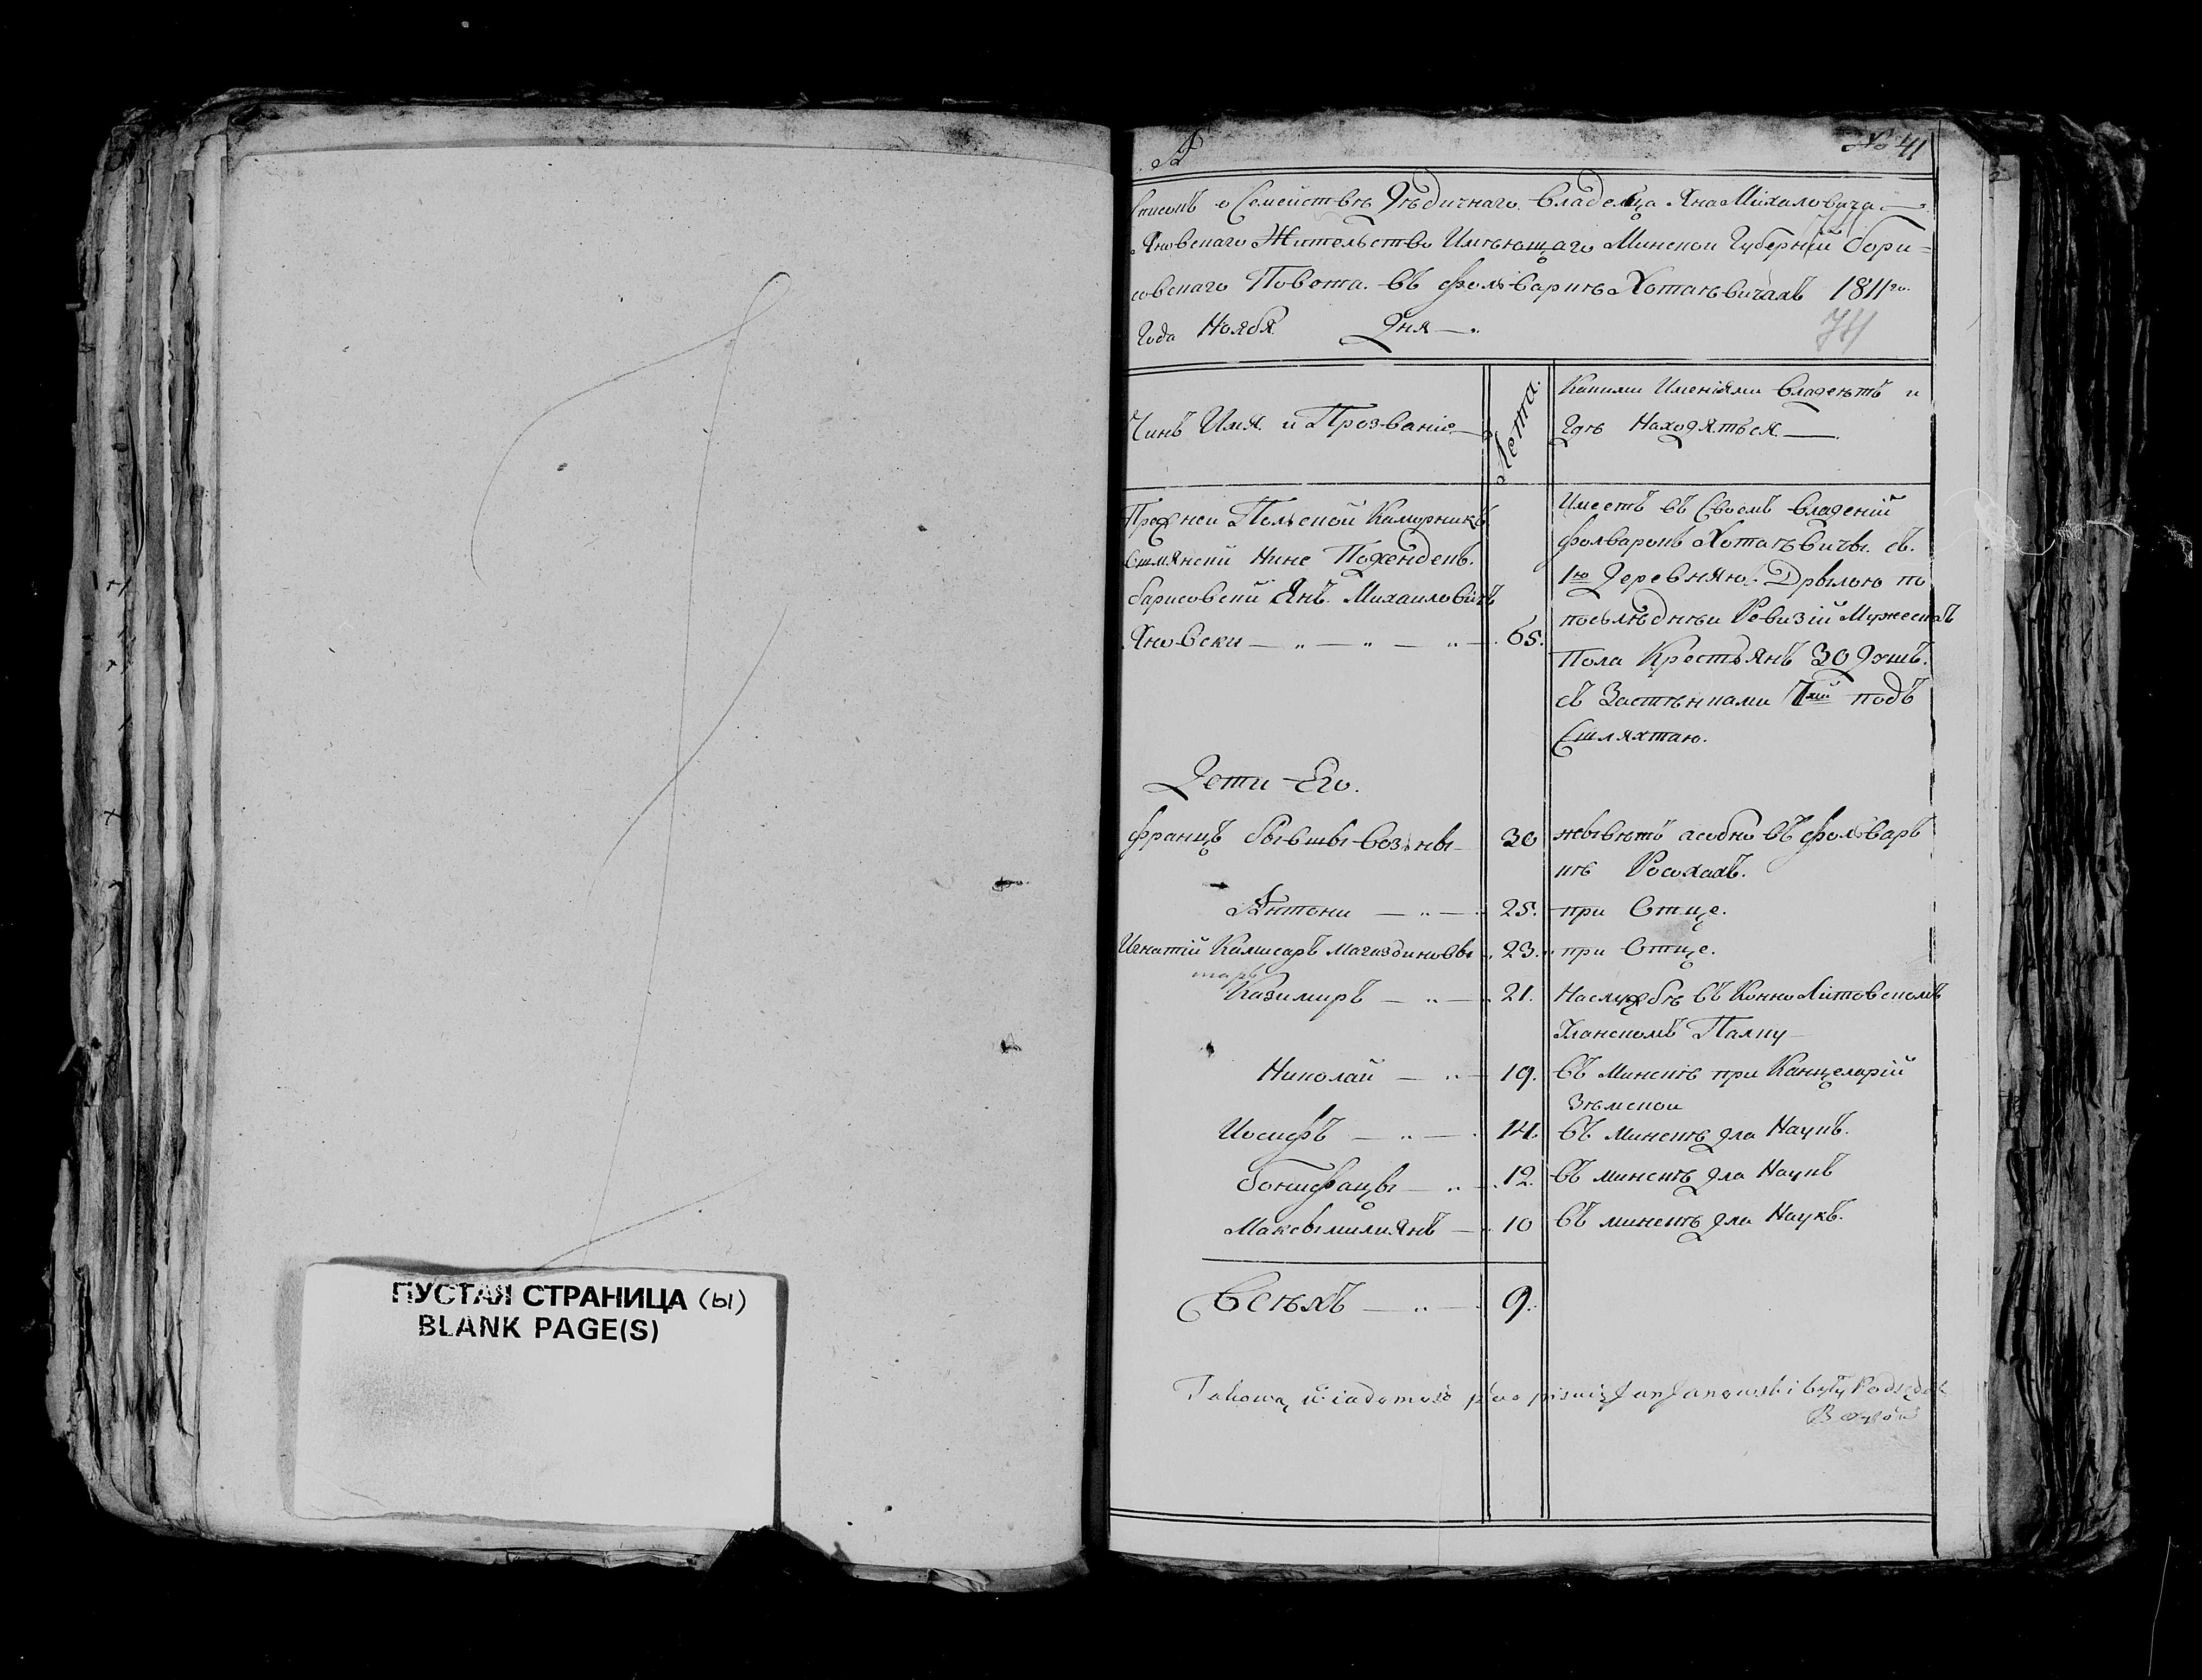 ПУСТАЯ СТРАНИЦА (ы)
BLANK PAGE(S)
№ 41
Списокъ о Семействѣ Дѣдичнаго Владелца Яна Михаловича
Яновскаго Жителство Имѣющаго Минской Губерніи Бори=
совскаго Повѣта. въ фольваркѣ Хотаевичахъ 1811го.
Года Ноября Дня —.
Чинъ Имя. и Прозваніе
Лета.
Какими Именіями Владеетъ и
Гдѣ Находяться —.
Прежней Польской Каморникъ
Ошмянски Нине Подсендекъ.
Барисовскій Янъ. Михаиловичъ
Яновски — „ — „ — „ — 65.
Имеетъ въ Своемъ Владеній
фолваронъ Хотаѣвичы. съ.
1ю Деревняю. Дрылою по
посьлѣднеи Ревизіи Мужескъ
Пола Крестьянъ 30 Душъ.
съ Застѣнками 7ми подъ
Сшляхтаю.
Дети Его.
Францъ бывшы Возны 30 жывѣтъ асобно въ фольвар
кѣ Росохахъ.
Антони — „ — 25. при Отце.
Игнатій Камисаръ Магазыновы 23. при Отце.
Казимиръ — „ — 21. На службѣ въ Конно Литовскомъ
Уланскомъ Палку
Николай — „ — 19. Въ Минскѣ при Канцелярій
Зѣмской
Иосифъ — „ — 14. Въ Минскѣ дла Наукъ.
Бонифацы — „ — 12. Въ минскѣ дла Наукъ
Максымилиянъ — 10 Въ минскѣ дла Наукъ.
Всѣхъ — „ — 9.
Takową wiadomość Jan Janowski były Podsędek